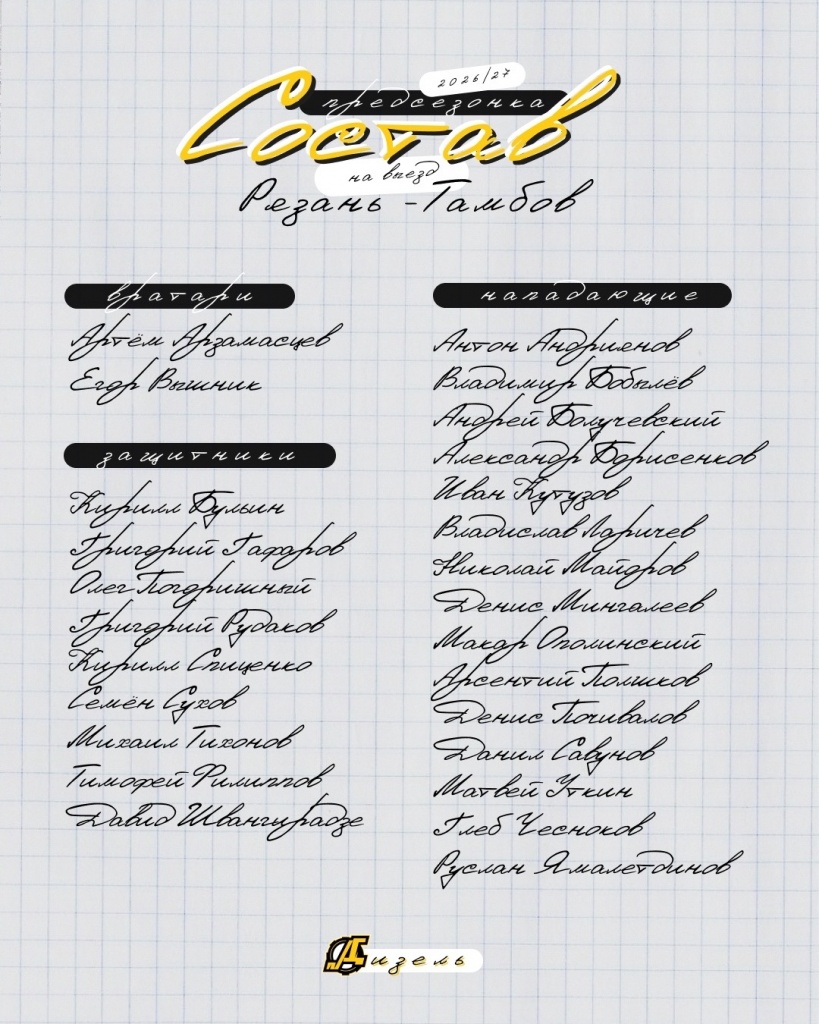 2026/27
предсезонка
Состав
на выезд
Рязань - Тамбов
вратари
Артём Арзамасцев
Егор Вышник
защитники
Кирилл Бульин
Григорий Гафаров
Олег Погоришный
Григорий Рудаков
Кирилл Спиценко
Семён Сухов
Михаил Тихонов
Тимофей Филиппов
Давид Швангирадзе
нападающие
Антон Андриянов
Владимир Бобылёв
Андрей Болучевский
Александр Борисенков
Иван Кутузов
Владислав Ларичев
Николай Майоров
Денис Мингалеев
Макар Ополинский
Арсентий Полшков
Денис Почивалов
Данил Савунов
Матвей Уткин
Глеб Чесноков
Руслан Ямалетдинов
Дизель